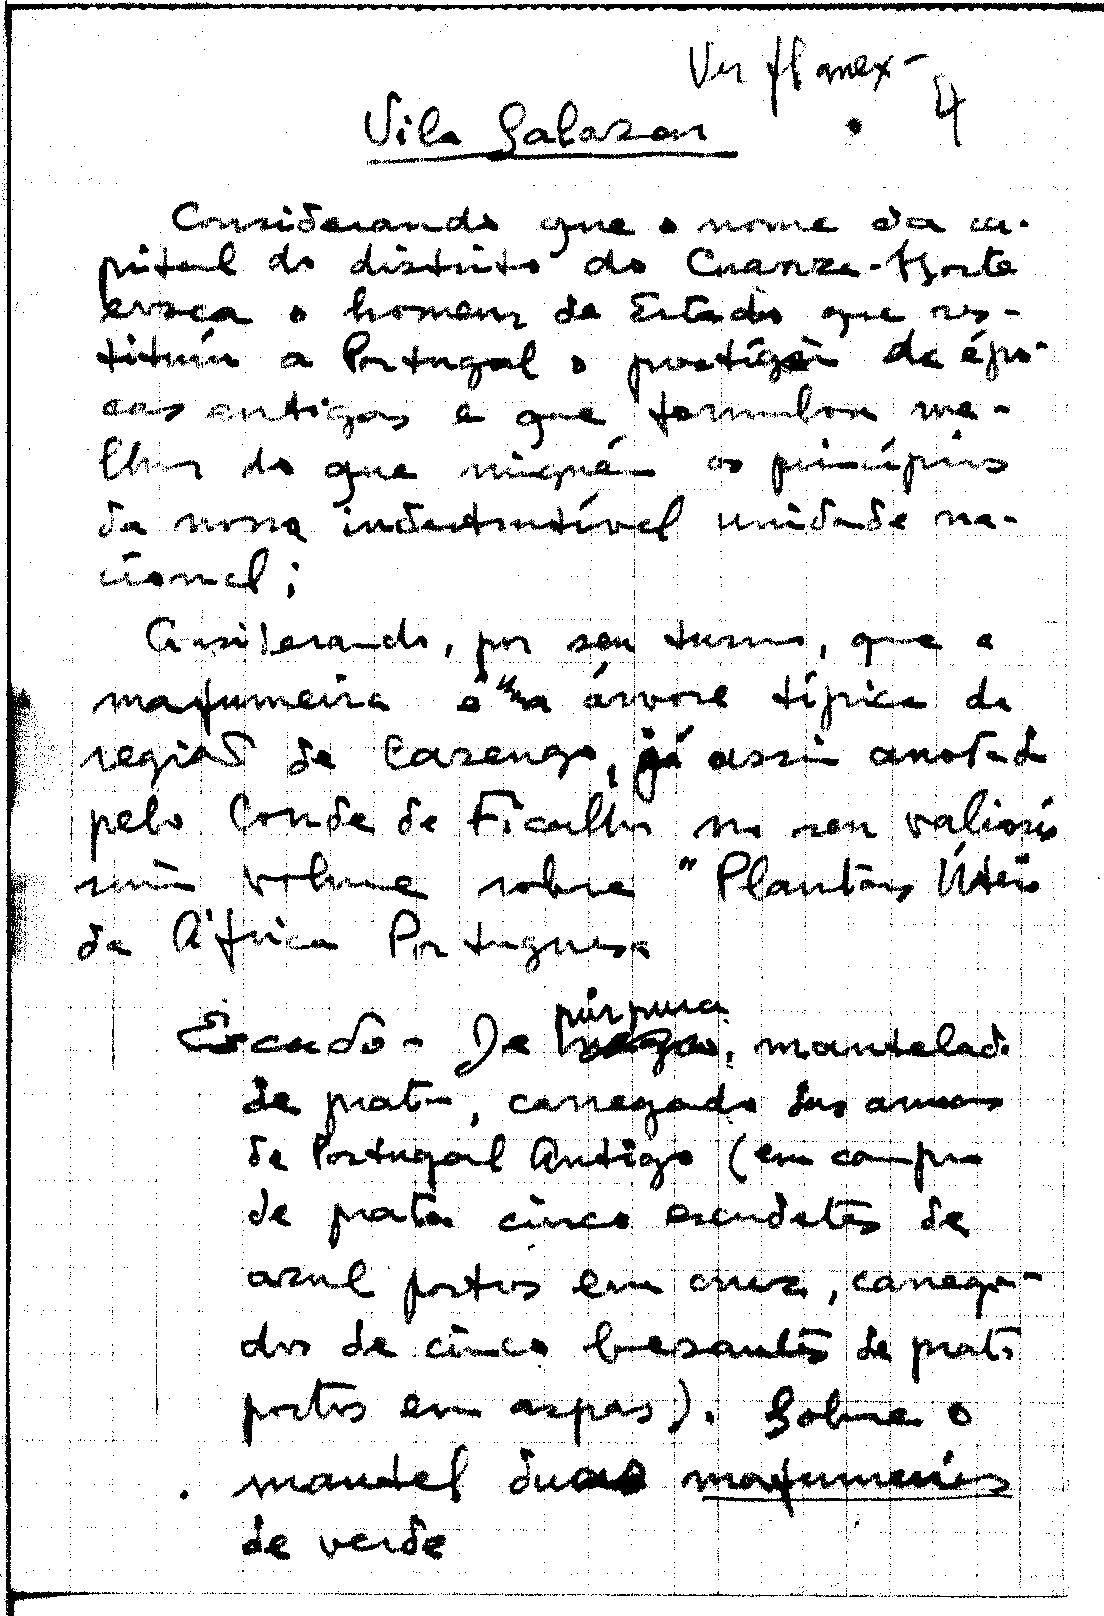 Ver fl anex-
4
Vila Salazar
Considerando que o nome da ca-
pital do distrito do Cuanza-Norte
evoca o homem de Estado que res-
tituiu a Portugal o prestígio de épo-
cas antigas e que formulou me-
lhor do que ninguém os princípios
da nossa indestrutível unidade na-
cional;
Considerando, por seu turno, que a
mafumeira é a árvore típica da
região de Cazengo, já assim anotada
pelo Conde de Ficalho no seu valiosís
simo volume sobre "Plantas Úteis
da África Portuguesa
púrpura
Escudo - De, mantelado
de prata, carregado das armas
de Portugal Antigo (em campo
de prata cinco escudetes de
azul postos em cruz, carrega-
dos de cinco besantes de prata
postos em aspas). Sobre o
mantel duas mafumeiras
de verde